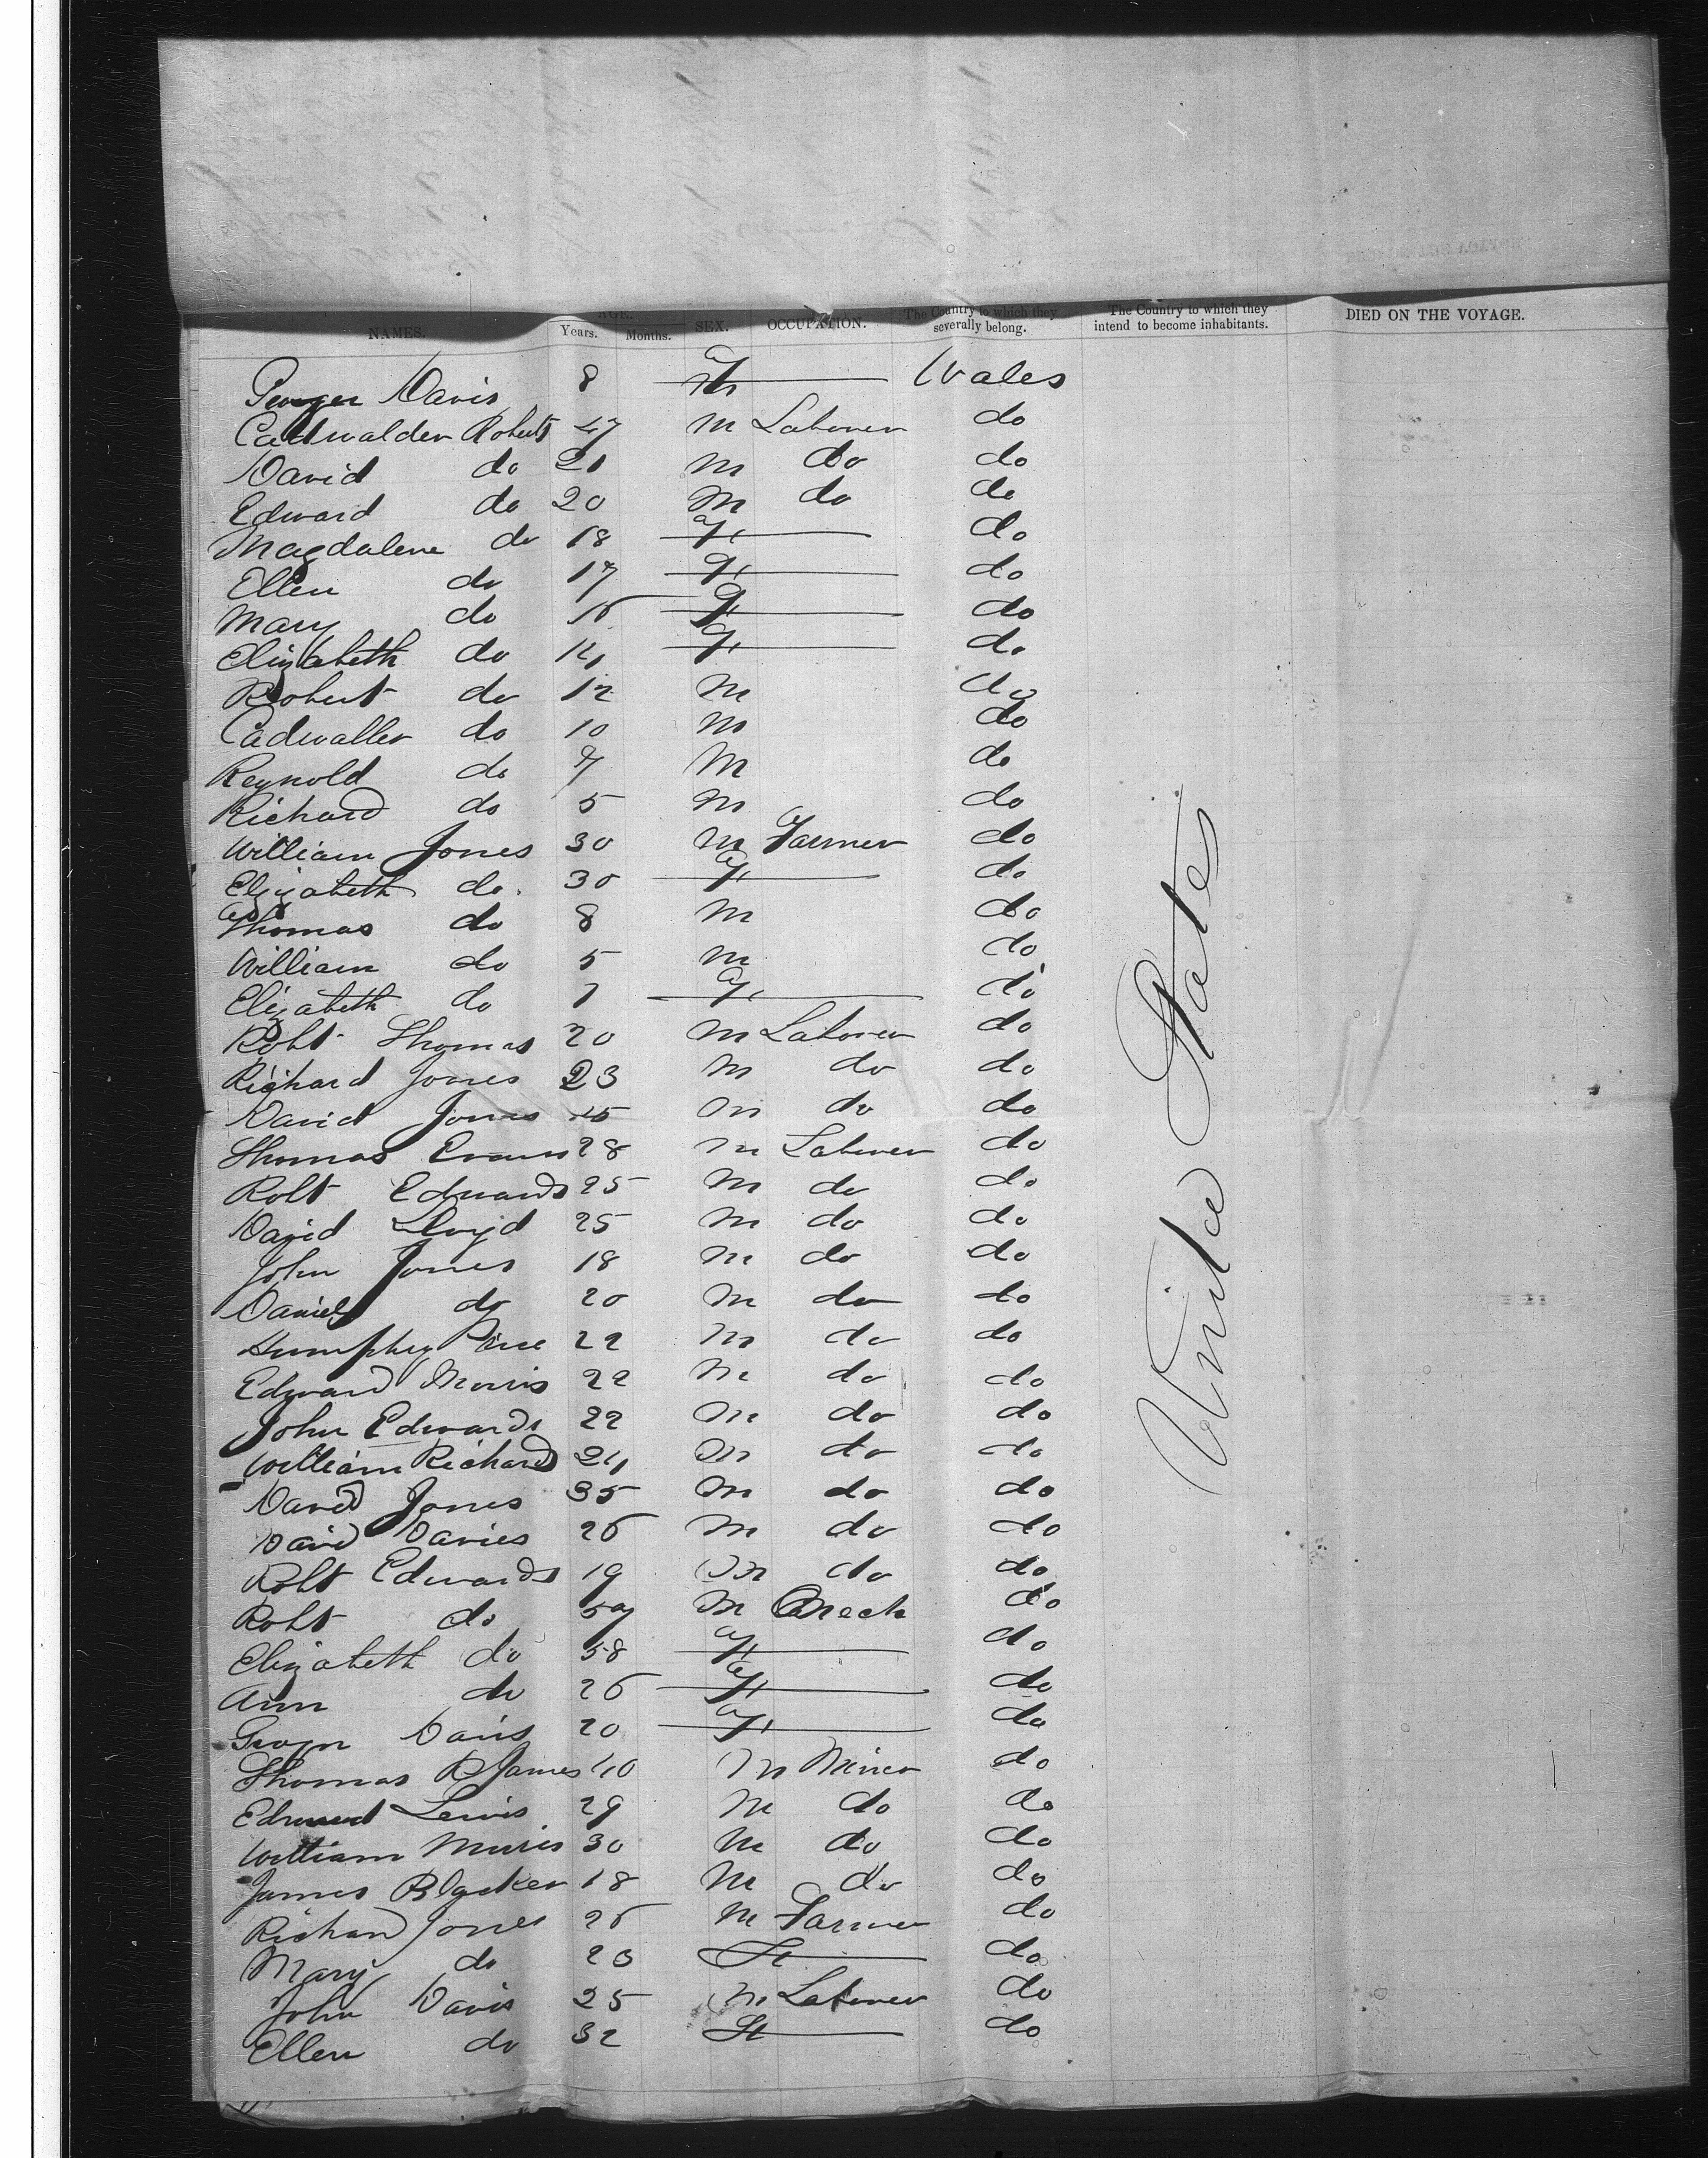 NAMES. AGE. Years. Months. SEX. OCCUPATION. The Country to which they severally belong. The Country to which they intend to become inhabitants. DIED ON THE VOYAGE.
Davis 8 Wales
Cadwalder Roberts 47 m Laborer do
David do 21 m do do
Edward do 20 m do do
Magdalene do 18 f do
Ellen do 17 f do
Mary do 16 f do
Elizabeth do 14 f do
Robert do 12 m do
Cadwaller do 10 m do
Reynold do 7 m do
Richard do 5 m do
William Jones 30 m Farmer do
Elizabeth do. 30 f do
Thomas do 8 m do
William do 5 m do
Elizabeth do 1 f do
Robt Thomas 20 m Laborer do
Richard Jones 23 m do do
David Jones 45 m do do
Thomas Evans 28 m Laborer do
Robt Edwards 25 m do do
David Lloyd 25 m do do
John Jones 18 m do do
Daniel do 20 m do do
Humphey Price 22 m do do
Edward Morris 22 m do do
John Edwards 22 m do do
William Richard 24 m do do
David Jones 35 m do do
David Davies 26 m do do
Robt Edwards 19 m do do
Robt do 57 m Mech do
Elizabeth do 58 f do
Ann do 26 f do
Davis 20 f do
Thomas R James 40 m Miner do
Edmund Lewis 29 m do do
William Morris 30 m do do
James 18 m do do
Richard Jones 26 m Farmer do
Mary do 23 f do
John Davis 25 m Laborer do
Ellen do 32 f do
United States